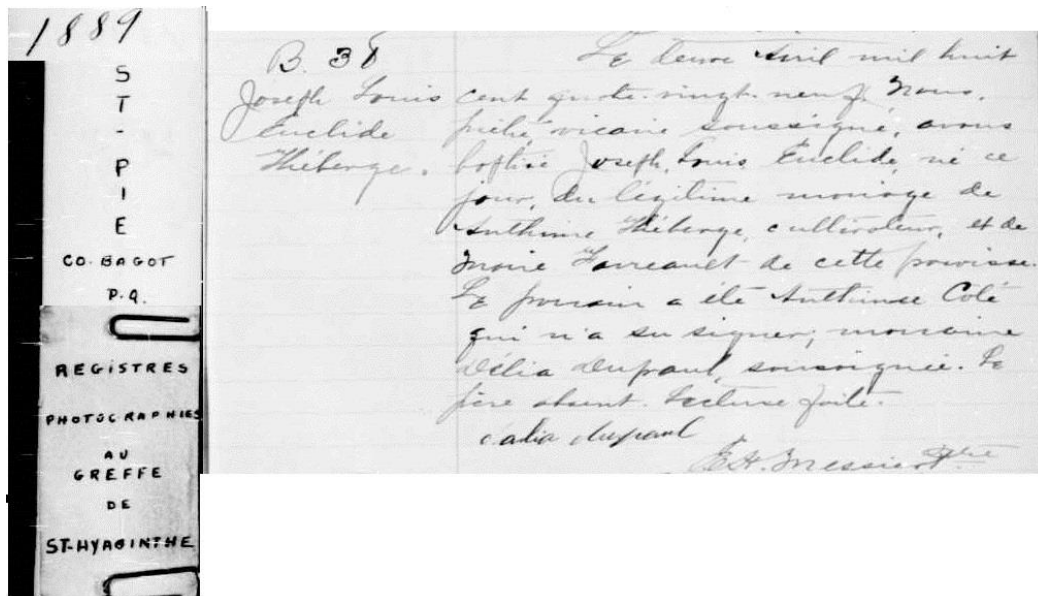 1889
ST-PIE
CO. BAGOT
P.Q.
REGISTRES
PHOTOGRAPHIES
AU
GREFFE
DE
ST-HYACINTHE
B. 38
Joseph Louis
Euclide
Théberge.
Le deux Avril mil huit
cent quatre-vingt-neuf, Nous,
prêtre vicaire soussigné, avons
baptisé Joseph, Louis, Euclide, né ce
jour, du légitime mariage de
Anthime Théberge, cultivateur, et de
Marie Favreault de cette paroisse.
Le parrain a été Anthime Coté
qui n'a su signer; marraine
Délia Dupaul, soussignée. Le
père absent. Lecture faite.
délia dupaul
E H. Messier Ptre